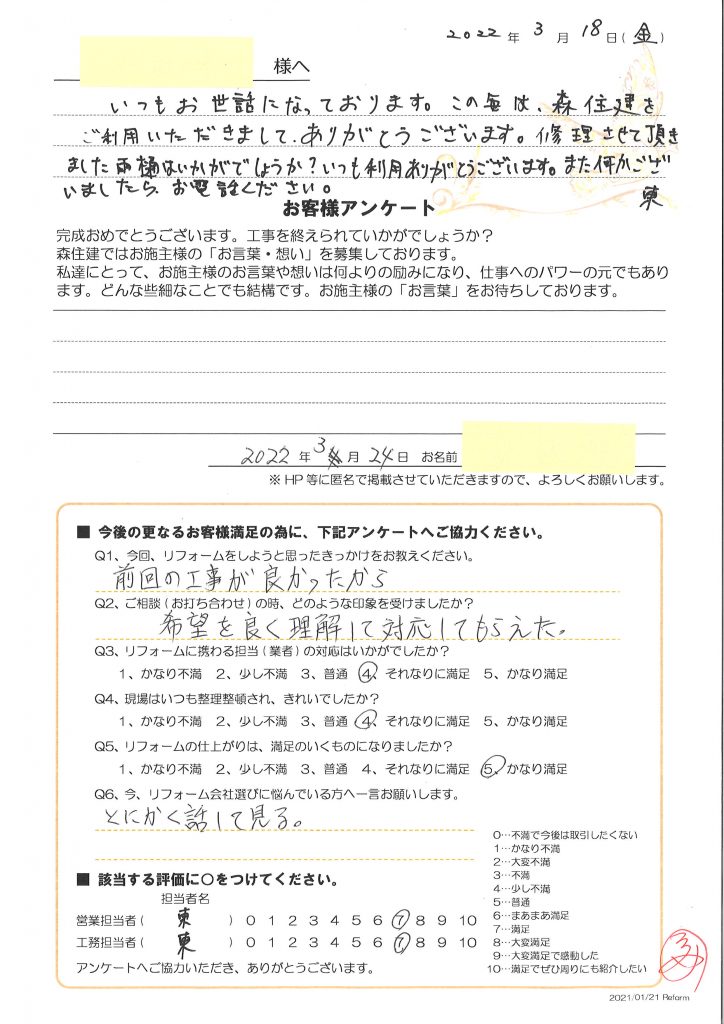 2022年3月18日(金)
様へ
いつもお世話になっております。この毎は、森住建を
ご利用いただきまして、ありがとうございます。修理させて頂き
ました雨樋はいかがでしょうか?いつも利用ありがとうございます。また何かござ
いましたら、お電話ください。
東
お客様アンケート
完成おめでとうございます。工事を終えられていかがでしょうか?
森住建ではお施主様の「お言葉・想い」を募集しております。
私達にとって、お施主様のお言葉や想いは何よりの励みになり、仕事へのパワーの元でもあり
ます。どんな些細なことでも結構です。お施主様の「お言葉」をお待ちしております。
2022年3月24日 お名前
※HP等に匿名で掲載させていただきますので、よろしくお願いします。
■ 今後の更なるお客様満足の為に、下記アンケートへご協力ください。
Q1、今回、リフォームをしようと思ったきっかけをお教えください。
前回の工事が良かったから
Q2、ご相談(お打ち合わせ)の時、どのような印象を受けましたか?
希望を良く理解して対応してもらえた。
Q3、リフォームに携わる担当(業者)の対応はいかがでしたか?
1、かなり不満 2、少し不満 3、普通 4、それなりに満足 5、かなり満足
Q4、現場はいつも整理整頓され、きれいでしたか?
1、かなり不満 2、少し不満 3、普通 4、それなりに満足 5、かなり満足
Q5、リフォームの仕上がりは、満足のいくものになりましたか?
1、かなり不満 2、少し不満 3、普通 4、それなりに満足 5、かなり満足
Q6、今、リフォーム会社選びに悩んでいる方へ一言お願いします。
とにかく話して見る。
■ 該当する評価に〇をつけてください。
担当者名
営業担当者( 東 ) 0 1 2 3 4 5 6 7 8 9 10
工務担当者( 東 ) 0 1 2 3 4 5 6 7 8 9 10
アンケートへご協力いただき、ありがとうございます。
0…不満で今後は取引したくない
1…かなり不満
2…大変不満
3…不満
4…少し不満
5…普通
6…まあまあ満足
7…満足
8…大変満足
9…大変満足で感動した
10…満足でぜひ周りにも紹介したい
2021/01/21 Reform